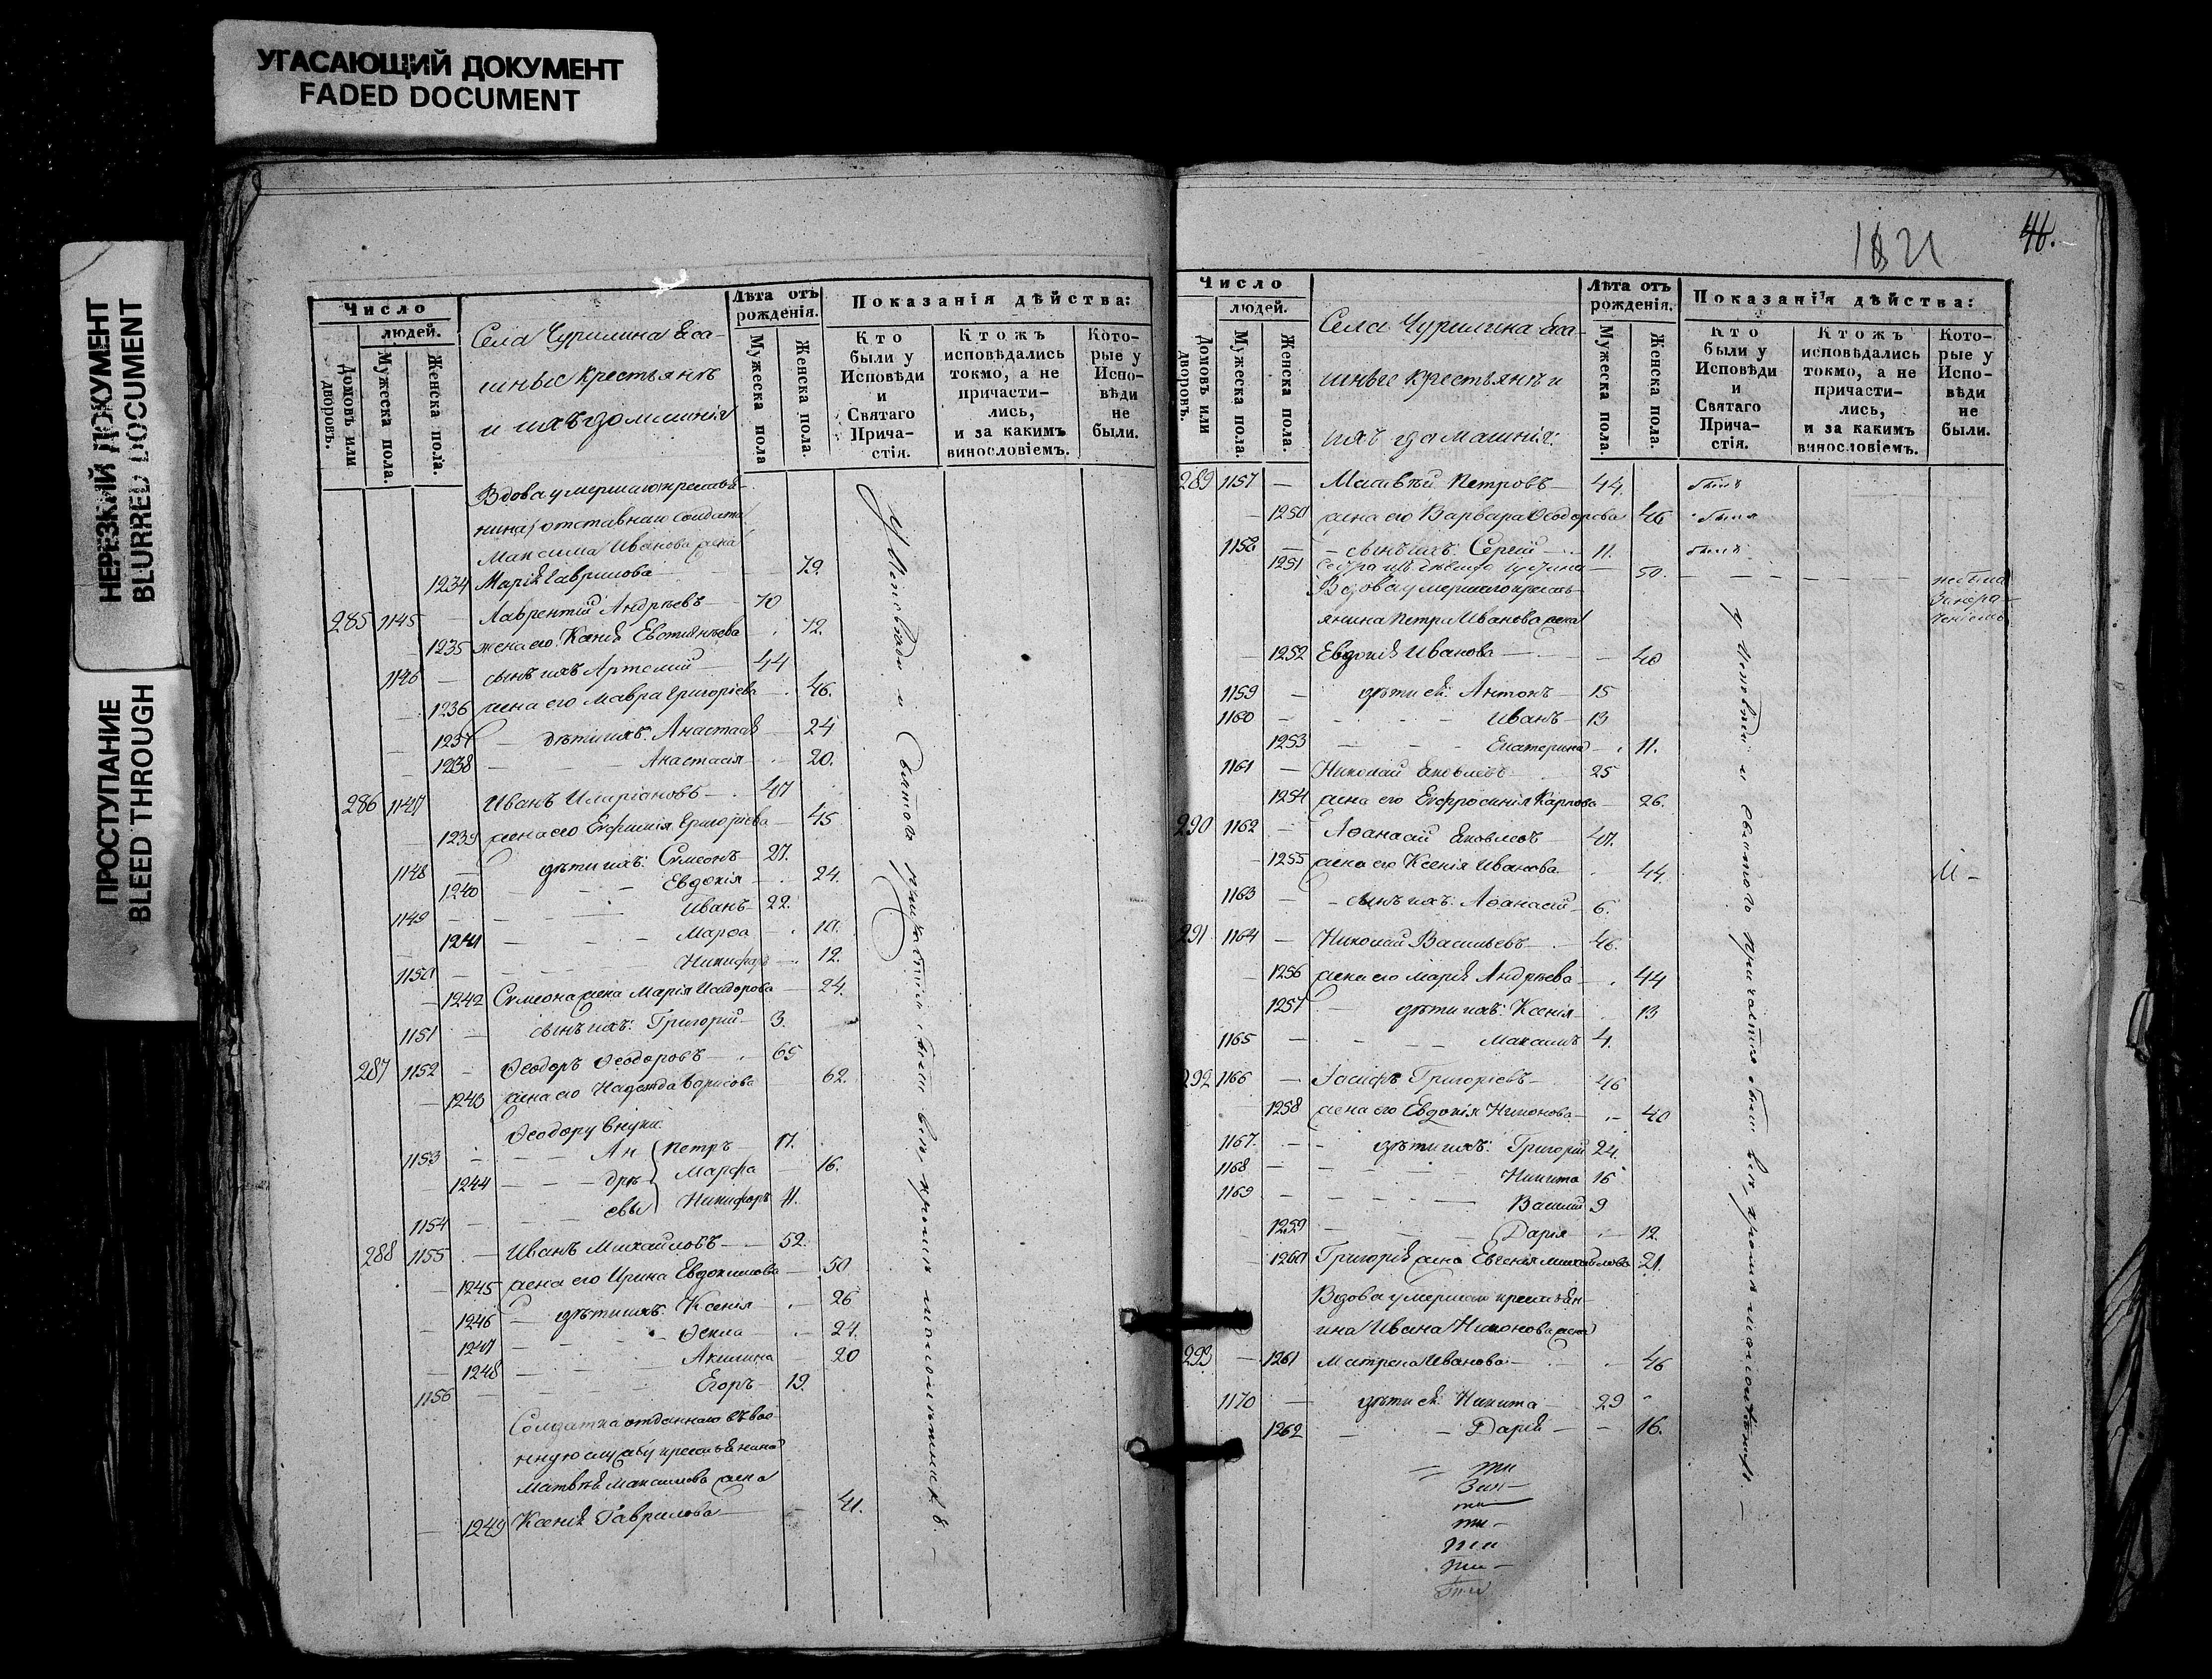 УГАСАЮЩИЙ ДОКУМЕНТ
FADED DOCUMENT
НЕРЕЗКИЙ ДОКУМЕНТ
BLURRED DOCUMENT
ПРОСТУПАНИЕ
BLEED THROUGH
Число
людей.
Домовъ или дворовъ.
Мужеска пола.
Женска пола.
Села Чурилина Яса-
шныс крестьянъ
и ихъ домашнія
Лѣта отъ рожденія.
Мужеска пола
Женска пола.
Показанія дѣйства:
Кто были у Исповѣди и Святаго Причастія.
Ктожъ исповѣдались токмо, а не причасти-лись, и за какимъ винословіемъ.
Кото-рые у Испо-вѣди не были.
Вдова умершаго крестья-
нина отставнаго Солдата
Максима Иванова жена
1234 Марія Гаврилова 79.
285 1145 Лаврентій Андреевъ 70
1235 жена его Ксенія 72.
1146 сынъ ихъ Артемій 44
1236 жена его Мавра Григоріева 46.
1237 дѣти ихъ: Анастасія 24
1238 Анастасія 20.
286 1147 Иванъ Иларіоновъ 47
1239 жена его Евфимія Григоріева 45
1148 дѣти ихъ: Сѵмеонъ 27.
1240 Евдокія 24.
1149 Иванъ 22.
1241 Марѳа
1150 Никифоръ 12.
1242 Сѵмеона жена Марія Исидорова 24.
1151 сынъ ихъ: Григорій 3.
287 1152 Ѳеодоръ Ѳеодоровъ 65
1243 жена его Надежда Борисова 62.
Ѳеодору внуки:
1153 Ан Петръ 17.
1244 дре Марфа 16.
1154 евы Никифоръ 11.
288 1155 Иванъ Михайловъ 52.
1245 жена его Ирина Евдокимова 50
1246 дѣти ихъ: Ксенія 26
1247 Ѳекла 24.
1248 Акилина 20
1156 Егоръ 19.
Солдатка отданнаго въ вое-
нную службу крестьянина
Матвѣя Максимова жена
1249 Ксенія Гаврилова 41.
У Исповѣди и Святаго причастія были всѣ, кромѣ малолѣтных. —
1821
46.
Число
людей.
Домовъ или дворовъ.
Мужеска пола.
Женска пола.
Села Чурилина Яса-
шные крестьянъ и
ихъ домашнія:
Лѣта отъ рожденія.
Мужеска пола.
Женска пола.
Показанія дѣйства:
Кто были у Исповѣди и Святаго Прича-стія.
Ктожъ исповѣдались токмо, а не причасти-лись, и за какимъ винословіемъ.
Кото-рые у Испо-вѣди не были.
289 1157 — Матвѣй Петровъ 44. былъ
1250 жена его Варвара Ѳеодорова 46 была
1158 — сынъ ихъ: Сергій 11. былъ
1251 50. не была
Вдова умершаго кресть-
янина Петра Иванова жена
1252 Евдокія Иванова 40
1159 — дѣти ея: Антонъ 15
1160 — Иванъ 13
1253 Екатерина 11.
1161 — Николай Яковлевъ 25
1254 жена его Евфросинія Карпова 26.
290 1162 — Аѳанасій Яковлевъ 47.
1255 жена его Ксенія Иванова 44.
1163 — сынъ ихъ: Аѳанасій 6.
291 1164 — Николай Васильевъ 46.
1256 жена его Марія Андреева 44
1257 дѣти ихъ: Ксенія 13
1165 — Максимъ 4.
292 1166 — Іосифъ Григоріевъ 46
1258 жена его Евдокія Никонова 40
1167. — дѣти ихъ: Григорій 24.
1168 — Никита 16
1169 — Василій 9
1259 Дарія 12.
1260 Григорія жена Евгенія Михайлова 21.
Вдова умершаго крестьян-
ина Ивана Никонова жена
293 — 1261 Матрена Иванова 46
1170 — дѣти ея: Никита 29
1262 Дарія 16.
у Исповѣди и святаго причастія были всѣ, кромѣ малолѣтныхъ. —